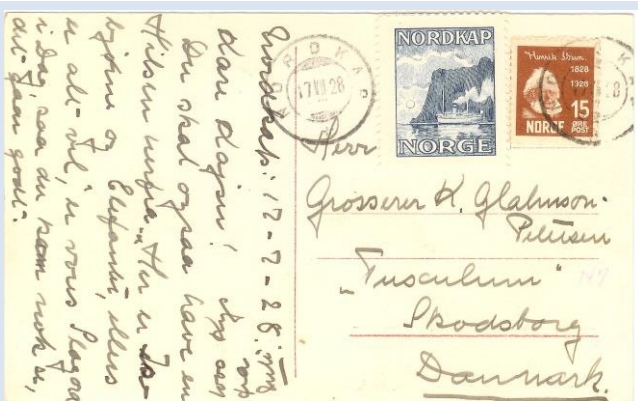 NORDKAP
17 VII 28
NORDKAP
NORGE
Henrik Ibsen
1828
1928
15
ØRE
POST
NORGE
Herr
Grosserer K. Glahnson-
Petersen
"Tusculum"
Skodsborg
Danmark.
147
Nordkap: 17-7-28.
Du skal ogsaa have en
Hilsen herfra. Her er Is-
bjørne og Elefanter, ellers
er alt vel, er
i Dag, saa du nok se,
alt gaar godt.